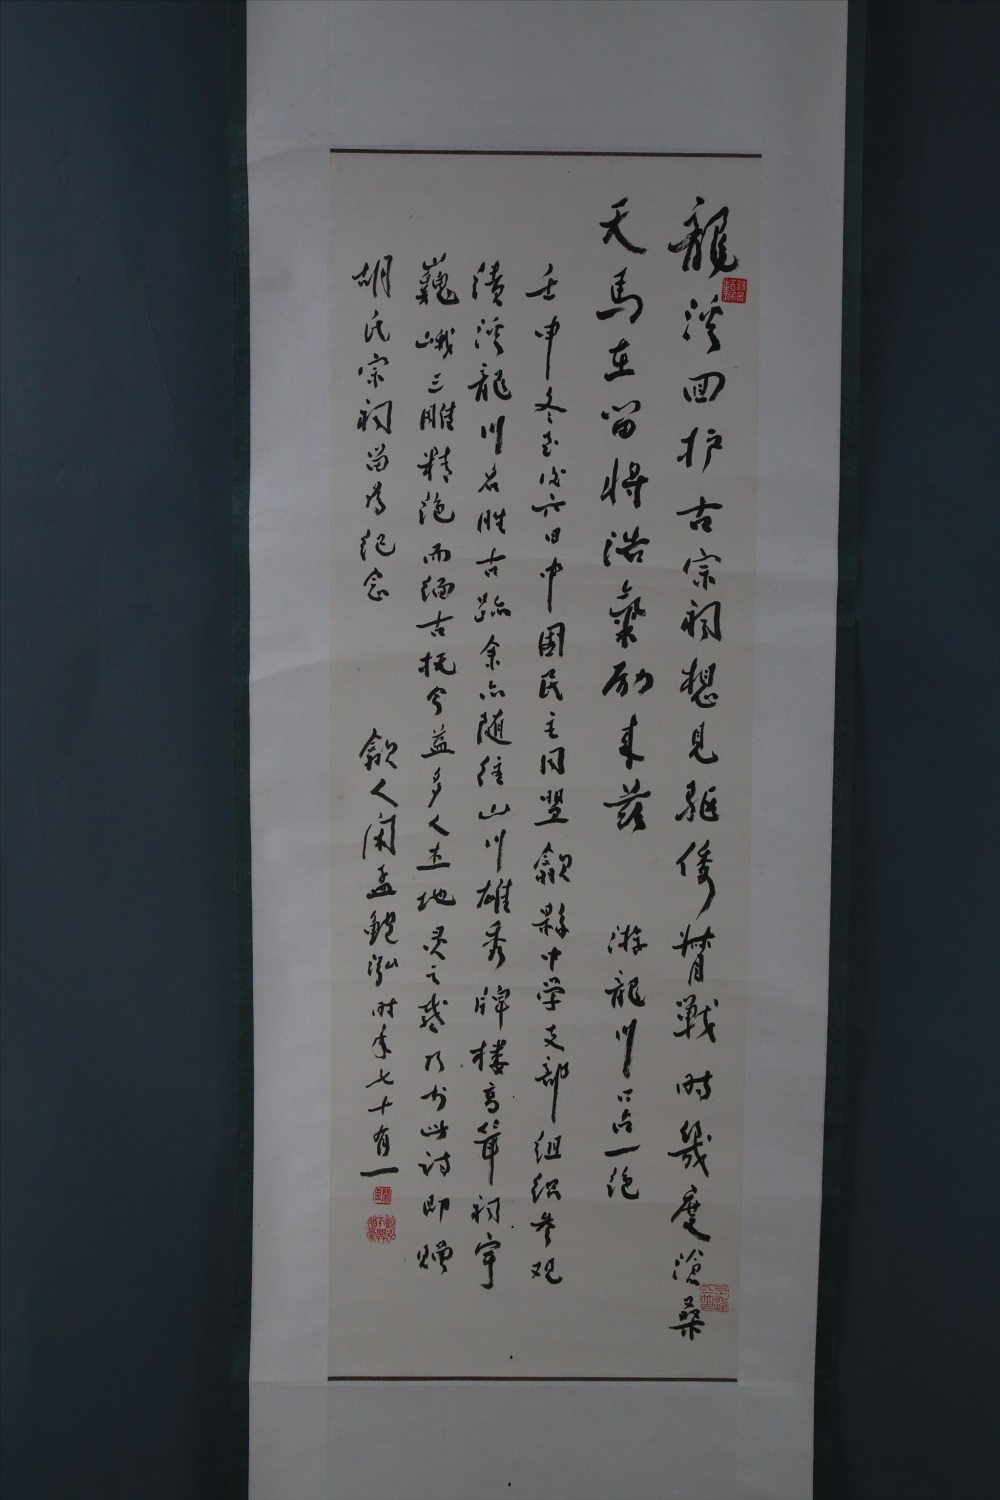 龍溪回护古宗祠想見驱倭督戰时幾度滄桑
天馬在留将浩氣励来兹 游龍川口占一绝
壬申冬至後六日中国民主同盟歙縣中学支部组织参观
绩溪龍川名胜古跡余亦随往山川雄秀牌楼高耸祠宇
巍峨三雕精绝而缅古抚今益多人杰地灵之感乃书此诗即赠
胡氏宗祠留为纪念
歙人闲孟鲍弘时年七十有一